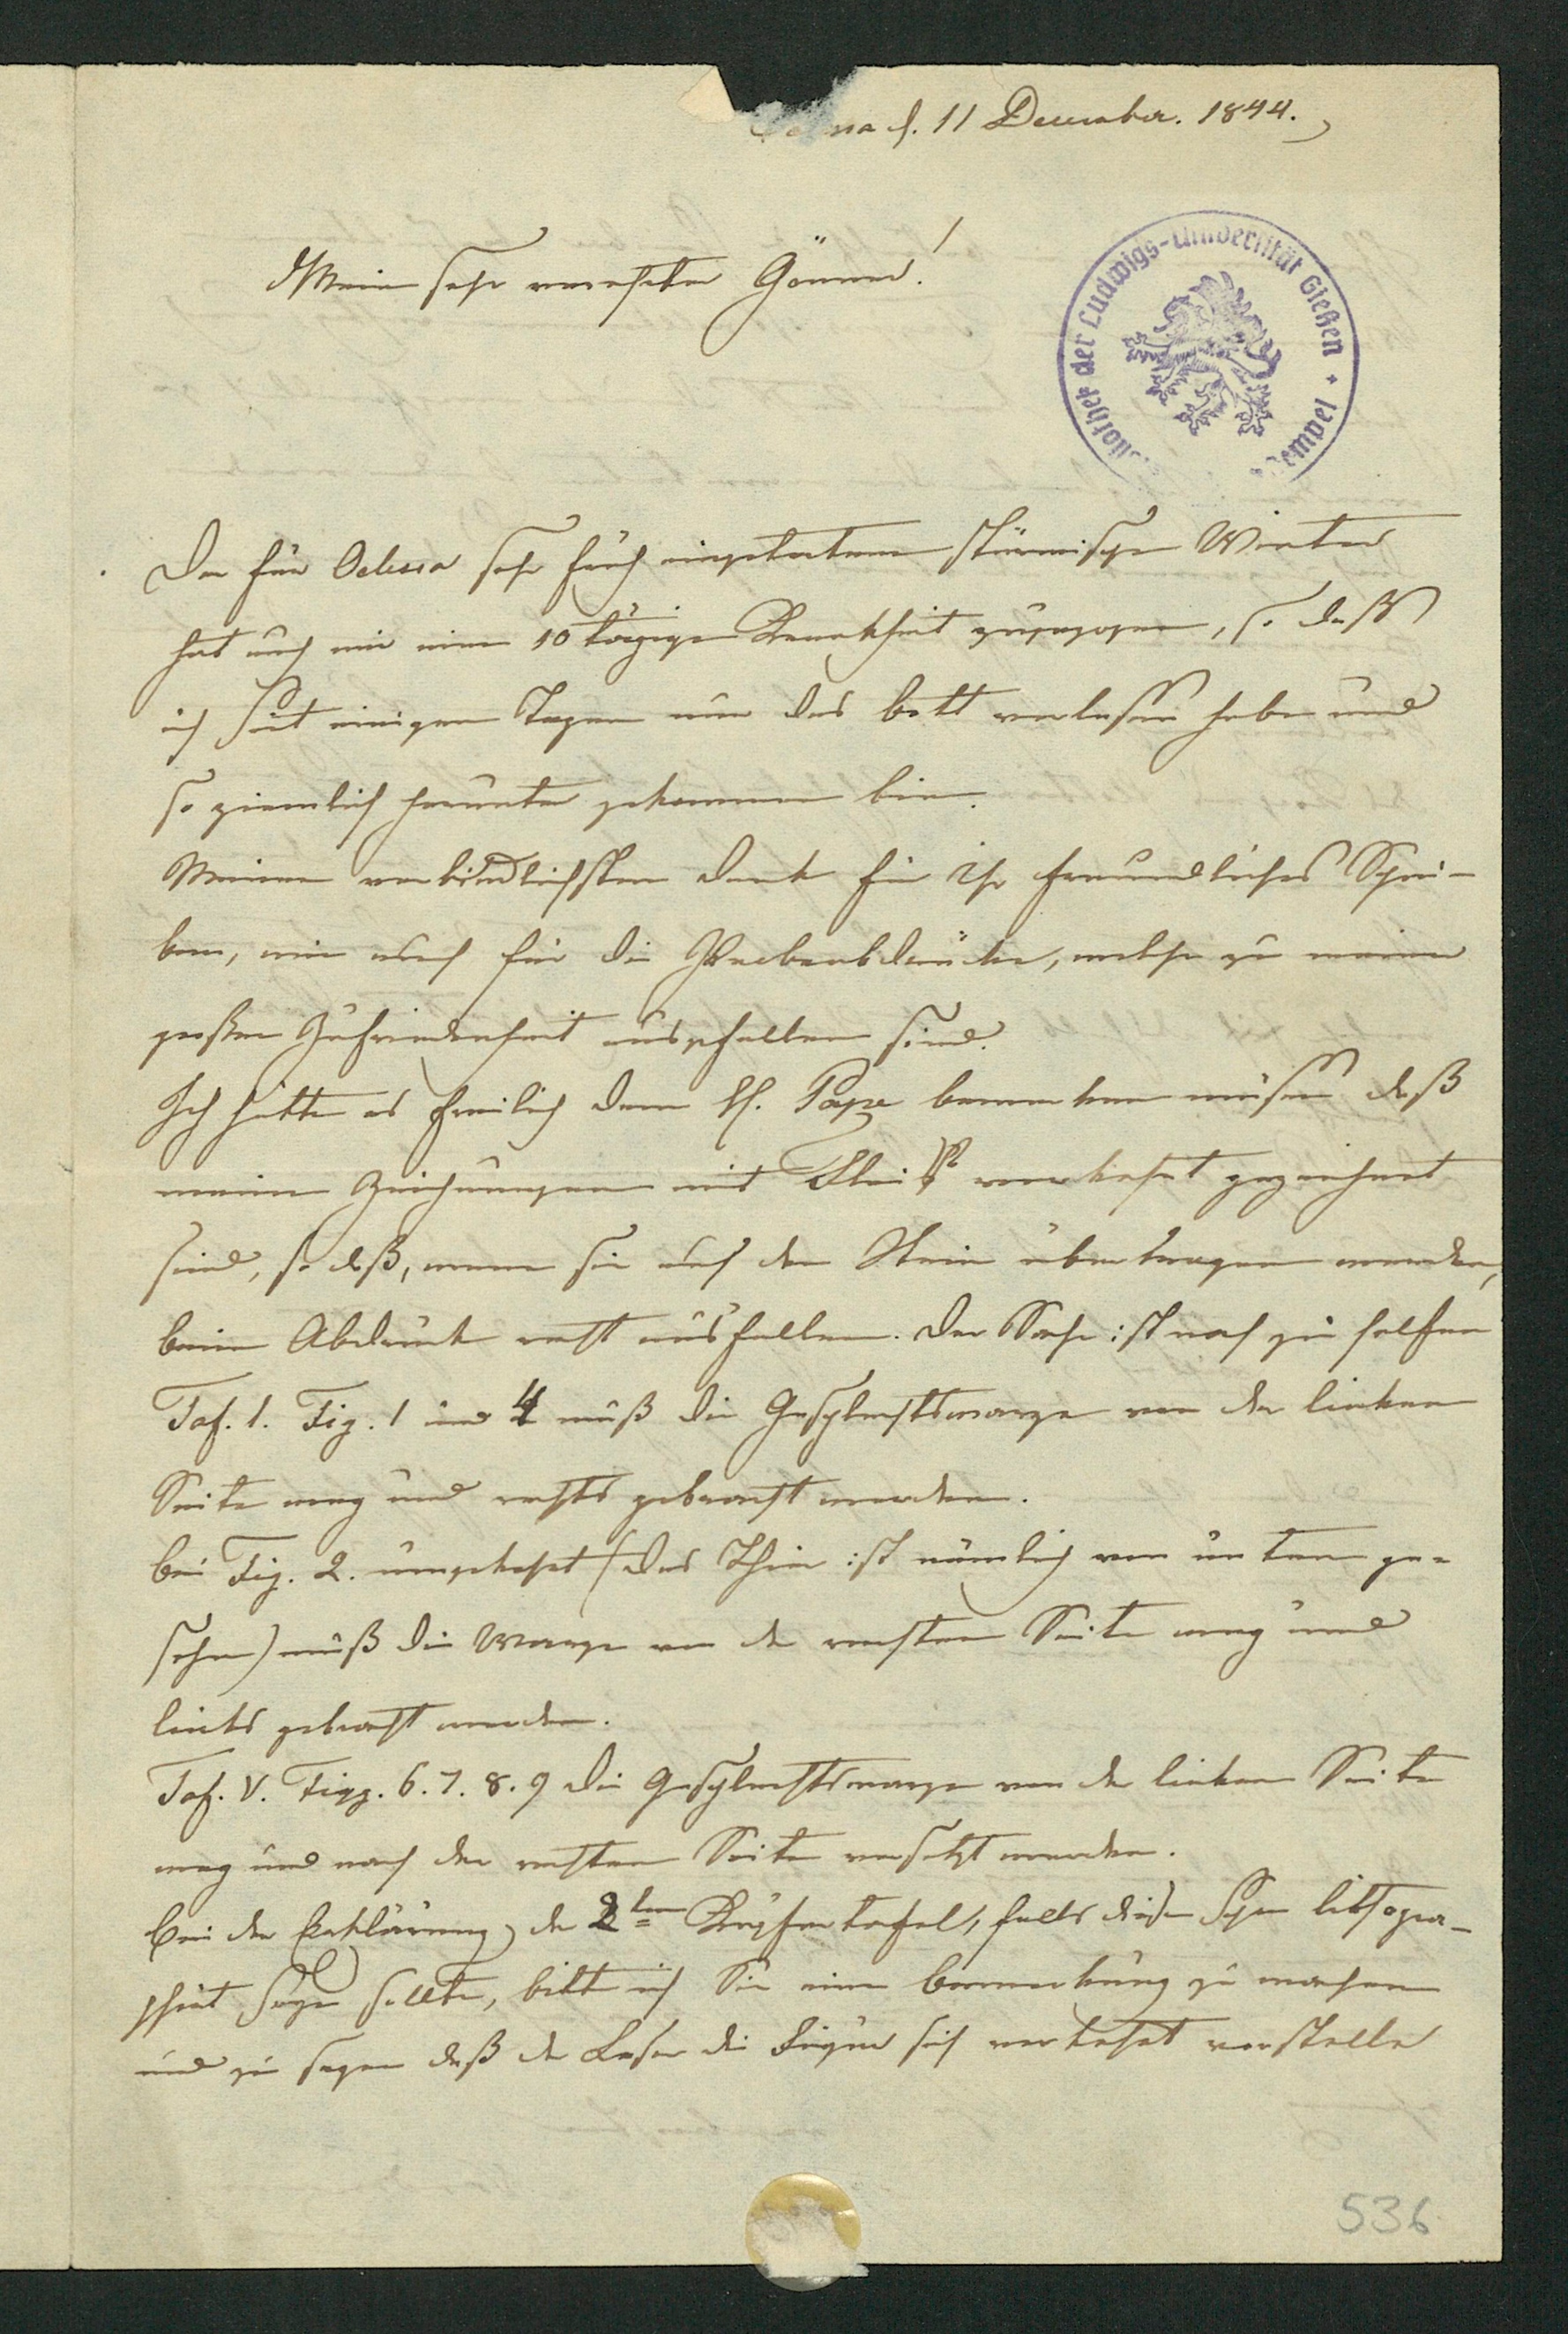 d. 11 December. 1844.
Mein sehr verehrter Gönner!
Bibliothek der Ludwigs-Universität Gießen + Stempel
Der für Odessa sehr früh eingetretene stürmische Winter
hat auch mir eine 10 tägige Krankheit zugezogen, so daß
ich seit einigen Tagen nun das Bett verlassen habe und
so ziemlich herunter gekommen bin.
Meinen verbindlichsten Dank für Ihr freundliches Schrei-
ben, wie auch für die Probeabdrücke, welche zu meiner
großen Zufriedenheit ausgefallen sind.
Ich hätte es freilich dem H. Pape bemerken müssen daß
meine Zeichnungen mit Fleiß verkehrt gezeichnet
sind, so daß, wenn sie auf den Stein übertragen werden,
beim Abdruck recht ausfallen. Der Sache ist noch zu helfen
Taf. 1. Fig. 1 und 4 muß die Geschlechtswarze von der linken
Seite weg und rechts gebracht werden.
bei Fig. 2. umgekehrt (das Thier ist nämlich von unten ge-
sehn) muß die Warze von der rechten Seite weg und
links gebracht werden.
Taf. V. Figg. 6. 7. 8. 9 die Geschlechtswarze von der linken Seite
weg und nach der rechten Seite versetzt werden.
Bei der Erklärung der 2ten Kupfertafel, falls diese schon lithogra-
phirt seyn sollte, bitt ich Sie eine Bemerkung zu machen
und zu sagen daß der Leser die Figur sich verkehrt vorstelle
536